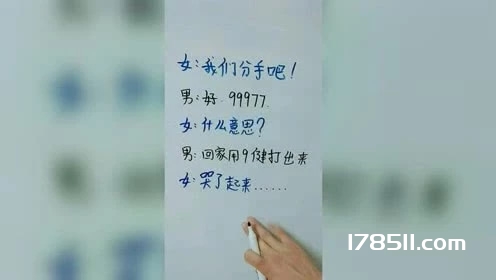 女:我们分手吧!
男:好.99977.
女:什么意思?
男:回家用9健打出来
女:哭了起来......
178511.com